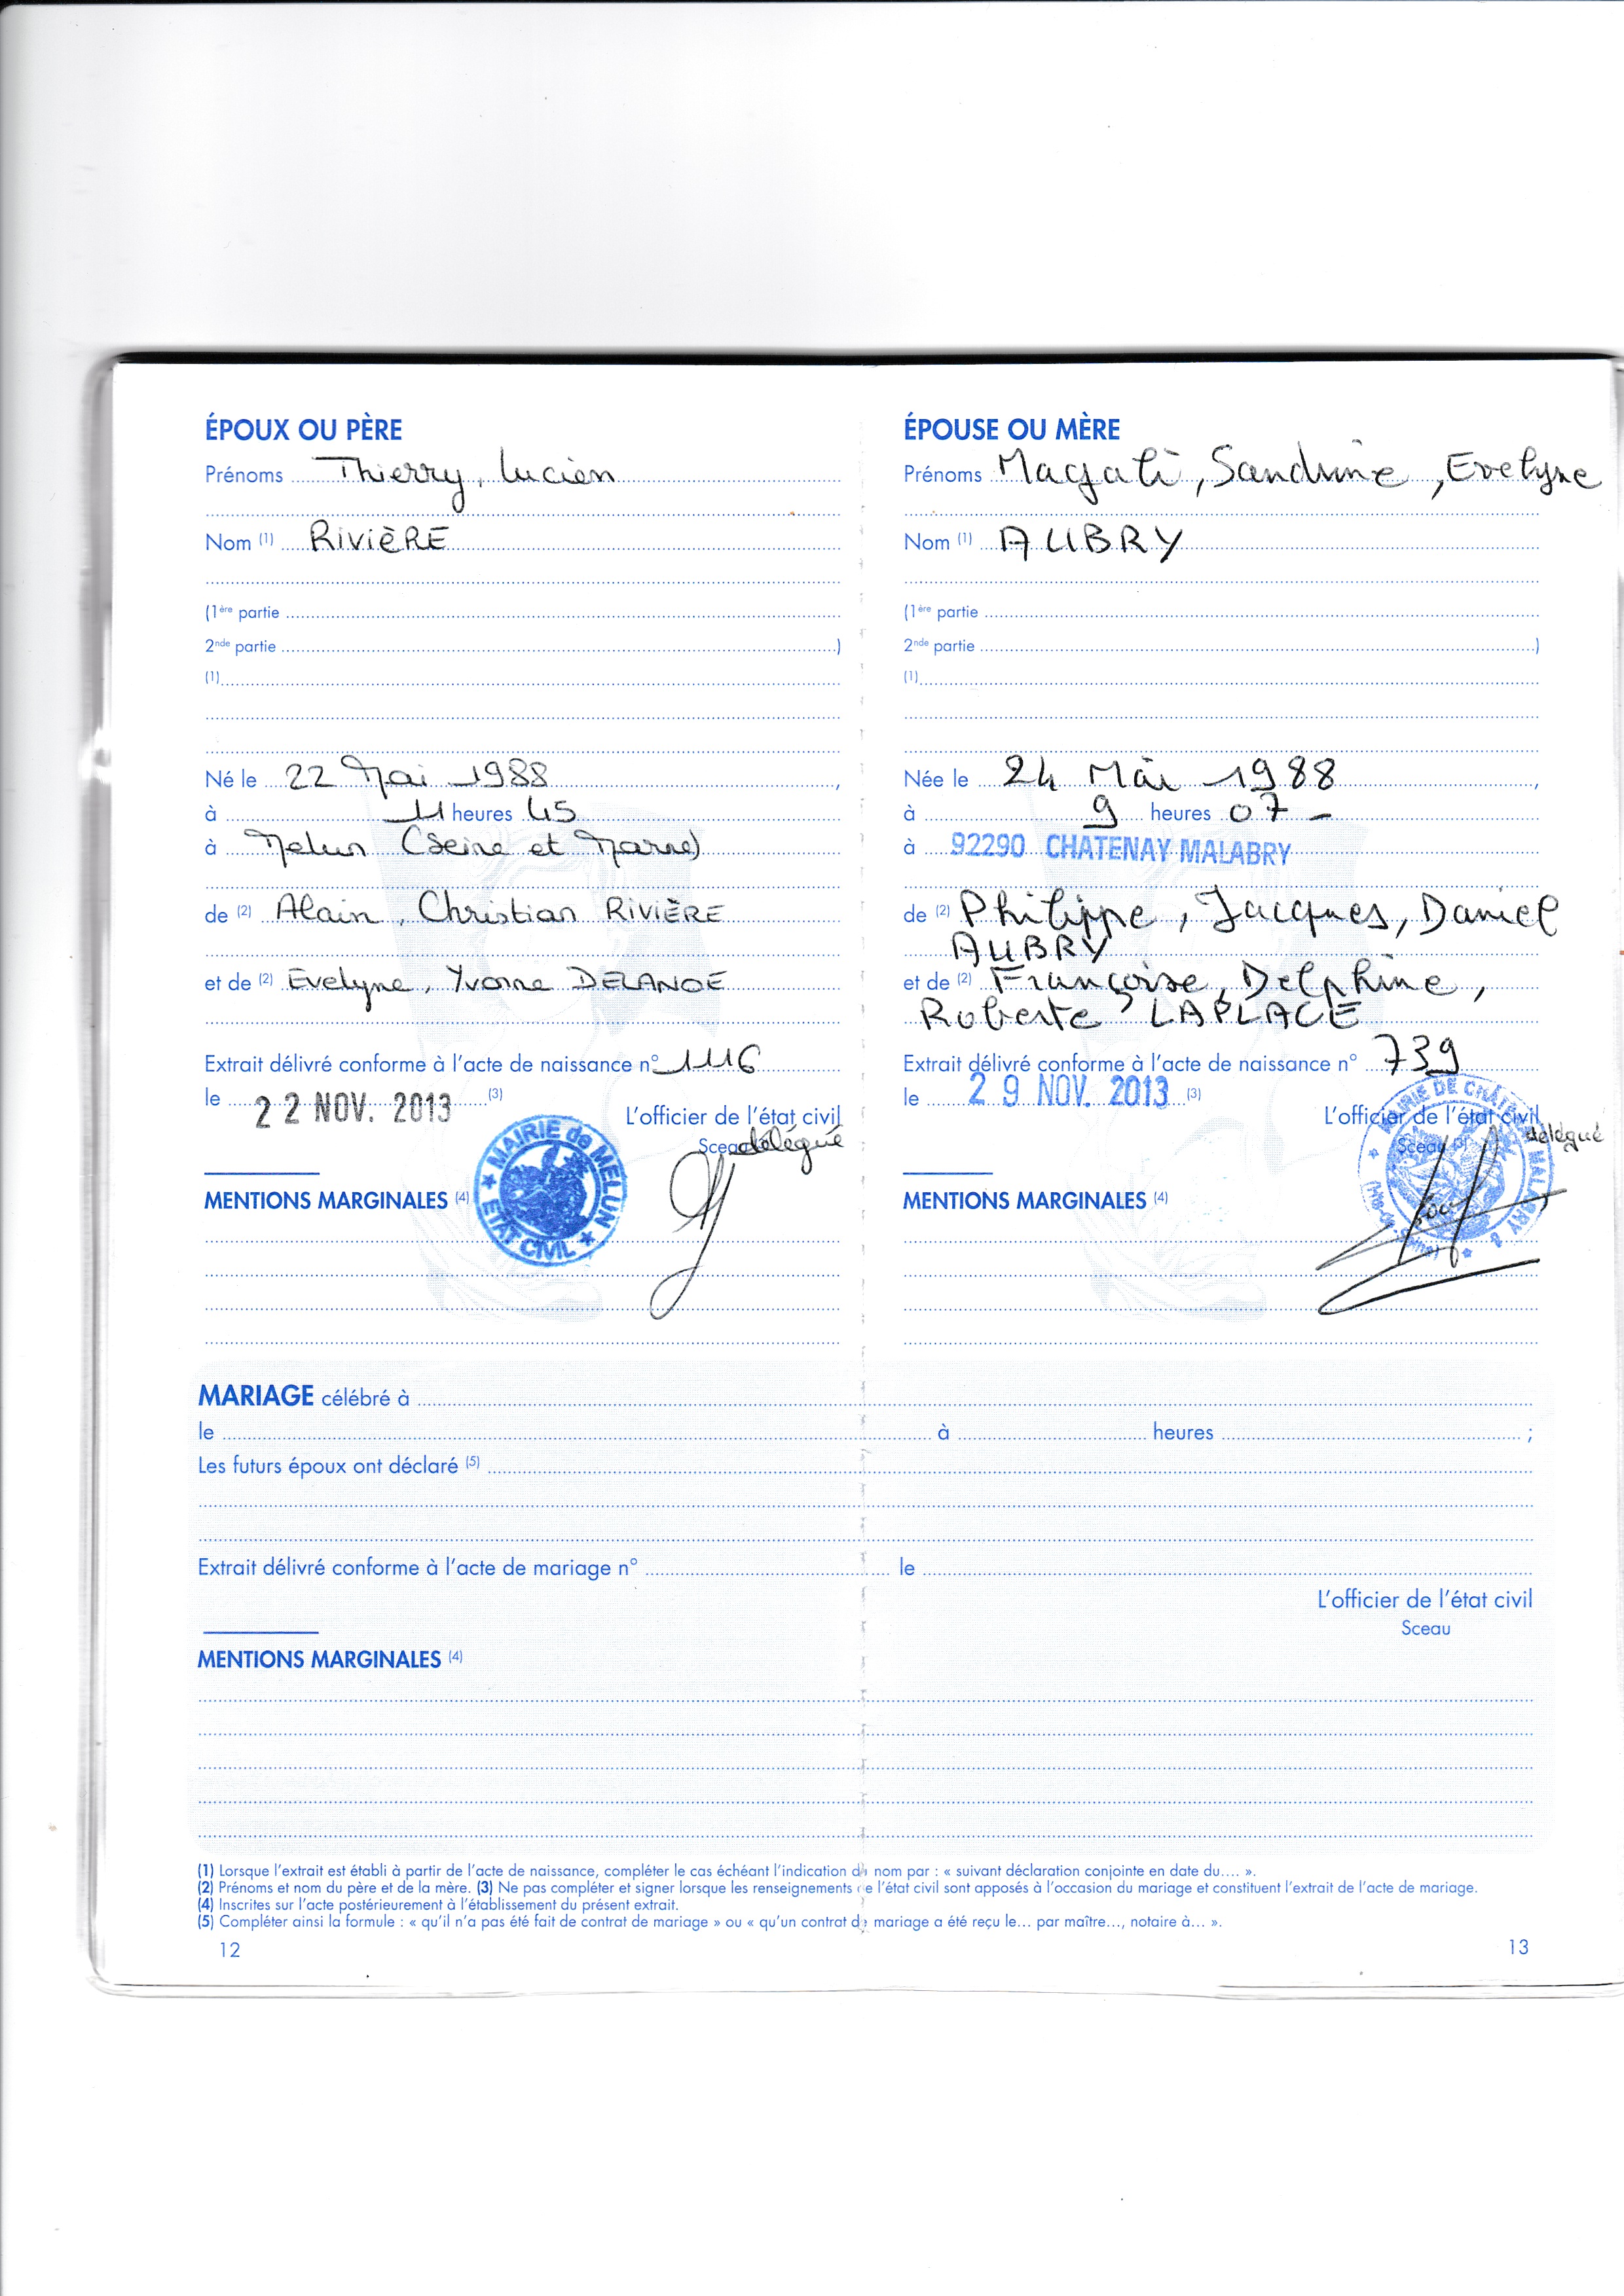 ÉPOUX OU PÈRE
Prénoms Thierry, Lucien
Nom (1) RIVIÈRE
(1ère partie
2nde partie )
(1)
Né le 22 Mai 1988 ,
à 11 heures 45
à Melun (Seine et Marne)
de (2) Alain, Christian RIVIÈRE
et de (2) Evelyne, Yvonne DELANOE
Extrait délivré conforme à l'acte de naissance n° 1116
le 22 NOV. 2013 (3)
L'officier de l'état civil
Sceau délégué
MAIRIE de MELUN
ETAT CIVIL
MENTIONS MARGINALES (4)
ÉPOUSE OU MÈRE
Prénoms Magali, Sandrine, Evelyne
Nom (1) AUBRY
(1ère partie
2nde partie )
(1)
Née le 24 Mai 1988 ,
à 9 heures 07 -
à 92290 CHATENAY MALABRY
de (2) Philippe, Jacques, Daniel
AUBRY
et de (2) Françoise, Delphine,
Roberte LAPLACE
Extrait délivré conforme à l'acte de naissance n° 739
le 29 NOV. 2013 (3)
L'officier de l'état civil
Sceau délégué
MAIRIE DE CHÂTENAY MALABRY
MENTIONS MARGINALES (4)
MARIAGE célébré à
le à heures ;
Les futurs époux ont déclaré (5)
Extrait délivré conforme à l'acte de mariage n° le
L'officier de l'état civil
Sceau
MENTIONS MARGINALES (4)
(1) Lorsque l'extrait est établi à partir de l'acte de naissance, compléter le cas échéant l'indication du nom par : « suivant déclaration conjointe en date du.... ».
(2) Prénoms et nom du père et de la mère. (3) Ne pas compléter et signer lorsque les renseignements de l'état civil sont apposés à l'occasion du mariage et constituent l'extrait de l'acte de mariage.
(4) Inscrites sur l'acte postérieurement à l'établissement du présent extrait.
(5) Compléter ainsi la formule : « qu'il n'a pas été fait de contrat de mariage » ou « qu'un contrat de mariage a été reçu le... par maître..., notaire à... ».
12
13